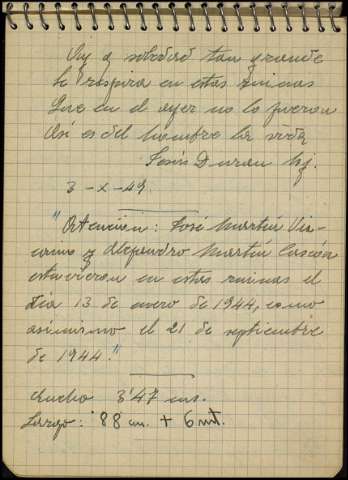 Uy q soledad tan grande
se respira en estas ruinas
Que en el ayer no lo fueron
Así es del hombre la vida
Jesús Duran Hj.
3-X-49
"Atención: José Martín Viz-
caino y Alejandro Martín Cascón
estuvieron en estas ruinas el
día 13 de enero de 1944, como
asimismo el 21 de septiembre
de 1944."
Ancho 3'47 ms.
Largo: 88 cm. + 6 mt.